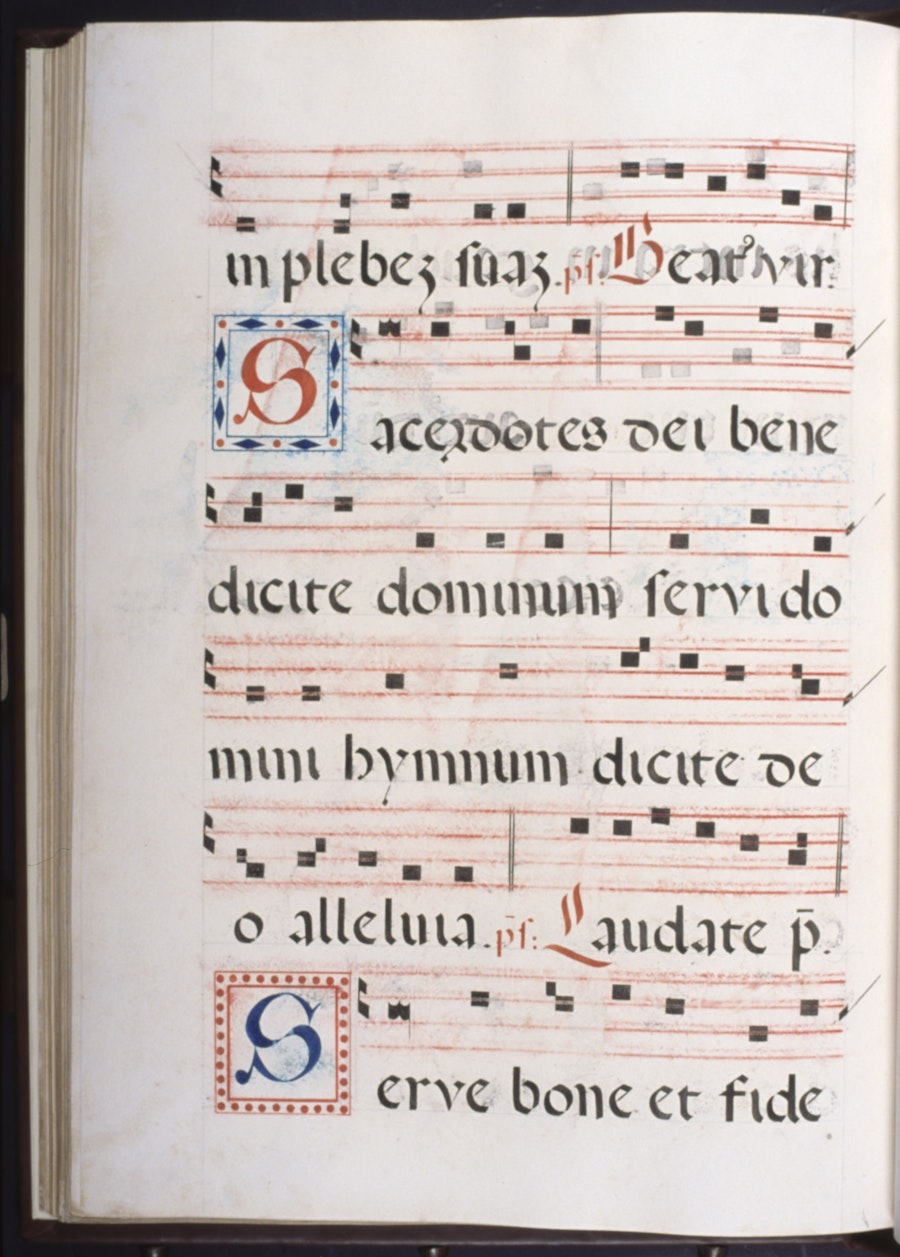 in plebeʒ suaʒ. ps̄. Beatꝰ vir.
Sacerdotes dei bene
dicite dominum servi do
mini hymnum dicite de
o alleluia. ps̄: Laudate p̄.
Serve bone et fide